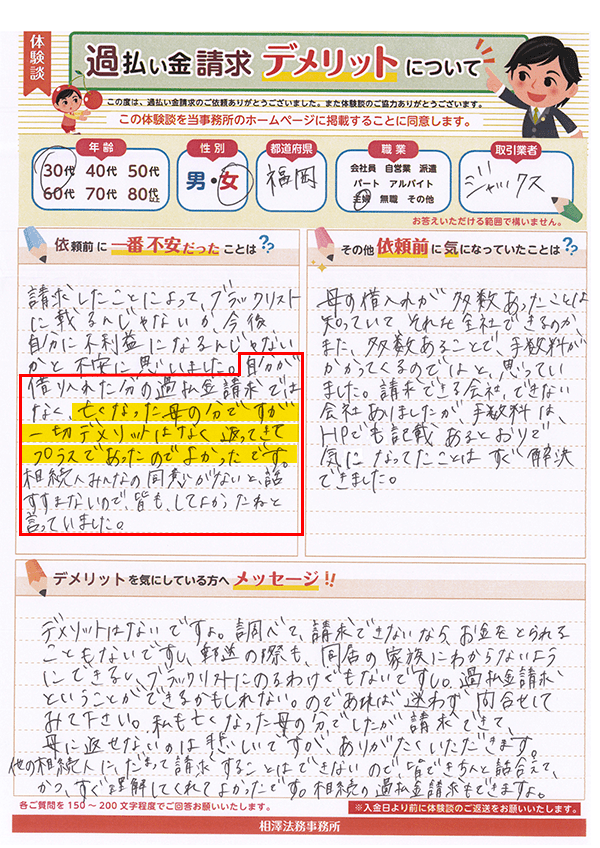 体験談
過払い金請求 デメリットについて
この度は、過払い金請求のご依頼ありがとうございました。また体験談のご協力ありがとうございます。
この体験談を当事務所のホームページに掲載することに同意します。
年齢
30代 40代 50代
60代 70代 80代以上
性別
男・女
都道府県
福岡
職業
会社員 自営業 派遣
パート アルバイト
主婦 無職 その他
取引業者
ジャックス
お答えいただける範囲で構いません。
依頼前に一番不安だったことは??
請求したことによって、ブラックリスト
に載るんじゃないか、今後、
自分に不利益になるんじゃない
かと不安に思いました。自分が
借り入れた分の過払金請求では
なく、亡くなった母の分ですが
一切デメリットはなく返ってきて
プラスであったのでよかったです。
相続人みんなの同意がないと、話
すすまないので、皆も、してよかったねと
言っていました。
その他依頼前に気になっていたことは??
母の借入れが多数あったことは
知っていて それも全社できるのか、
また、多数あることで、手数料が
かかってくるのでは、と、思ってい
ました。請求できる会社、できない
会社ありましたが手数料は、
HPでも記載あるとおりで
気になってたことはすぐ解決
できました。
デメリットを気にしている方へメッセージ!!
デメリットはないですよ。調べて、請求できないなら、お金をとられる
こともないですし、郵送の際も、同居の家族にわからないよう
にできるし、ブラックリストにのるわけでもないですし。過払金請求
ということができるかもしれない。のであれば 迷わず 問合せして
みて下さい。私も亡くなった母の分でしたが 請求できて、
母に返せないのは悲しいですが、ありがたくいただきます。
他の相続人に、だまって請求することはできないので、皆できちんと話合えて、
かつ、すぐ理解してくれてよかったです。相続の過払金請求もできますよ。
各ご質問を150～200文字程度でご回答お願いいたします。
※入金日より前に体験談のご返送をお願いいたします。
相澤法務事務所